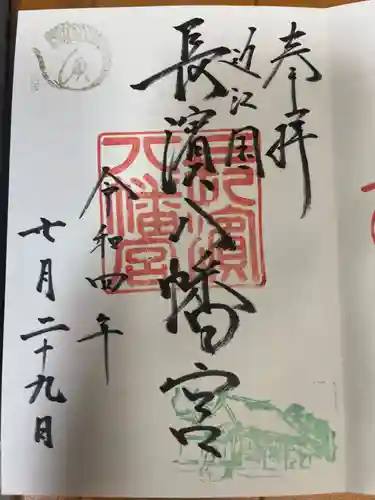 奉拝
近江国
長濱八幡宮
令和四年
七月二十九月
長濱八幡宮